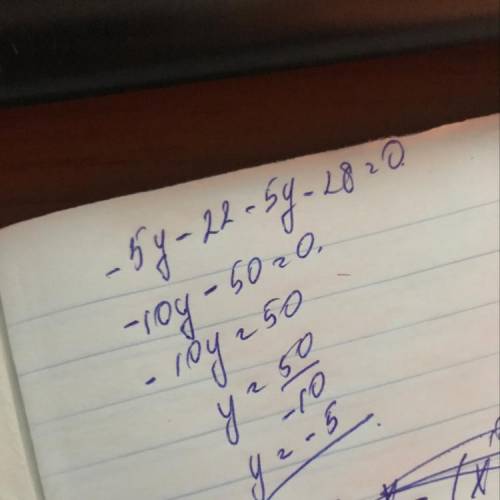 -5y-22-5y-28=0
-10y-50=0.
-10y=50
y=50/-10
y=-5.